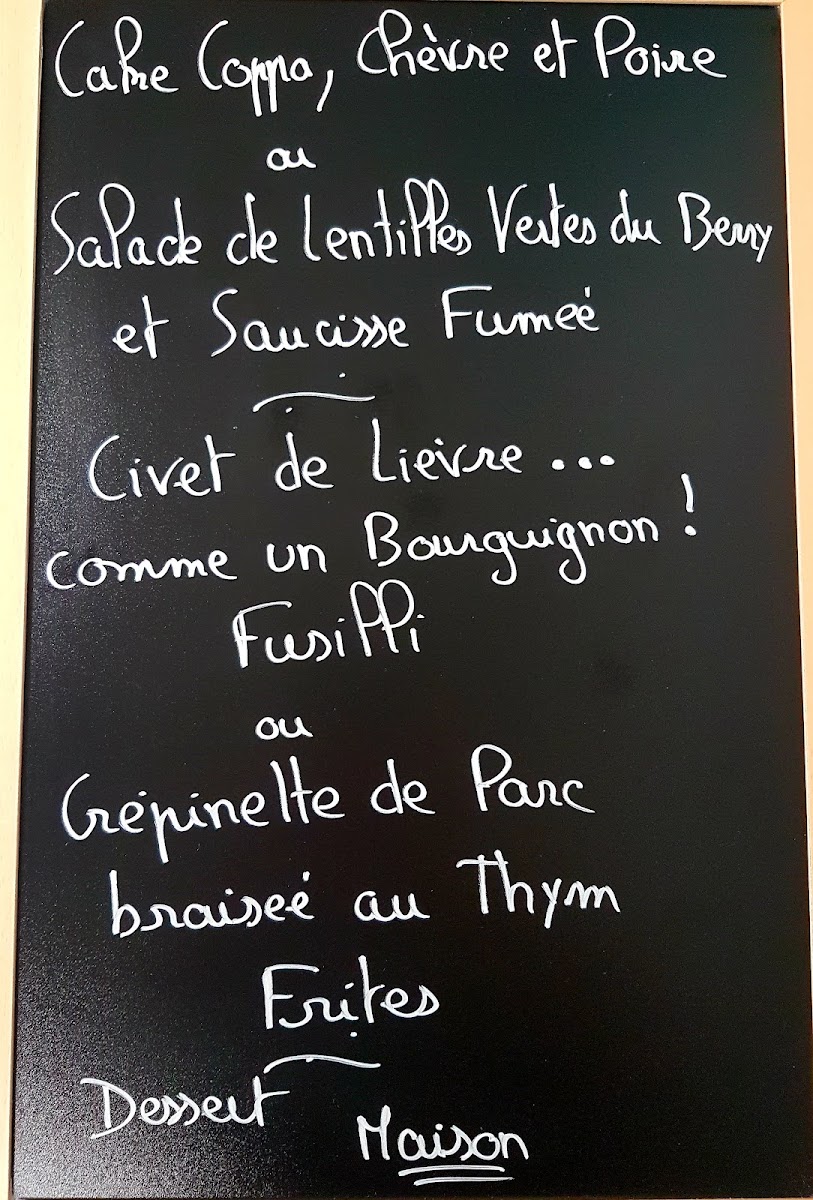 Cake Coppa, Chèvre et Poire
ou
Salade de Lentilles Vertes du Berry
et Saucisse Fumeé
Civet de Lièvre...
comme un Bourguignon !
Fusilli
ou
Crépinette de Porc
braiseé au Thym
Frites
Dessert
Maison